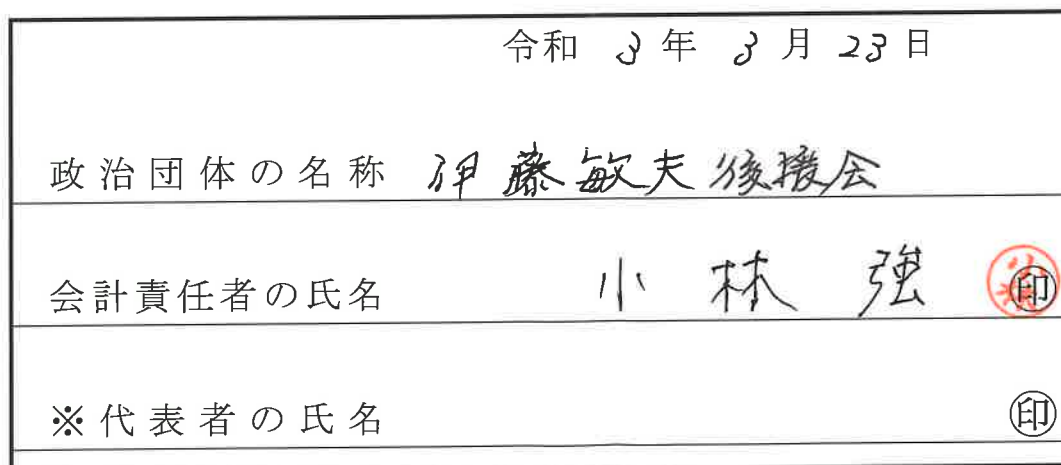 令和 3 年 3 月 23 日
政治団体の名称 伊藤敏夫後援会
会計責任者の氏名 小林 強 印
※代表者の氏名 印